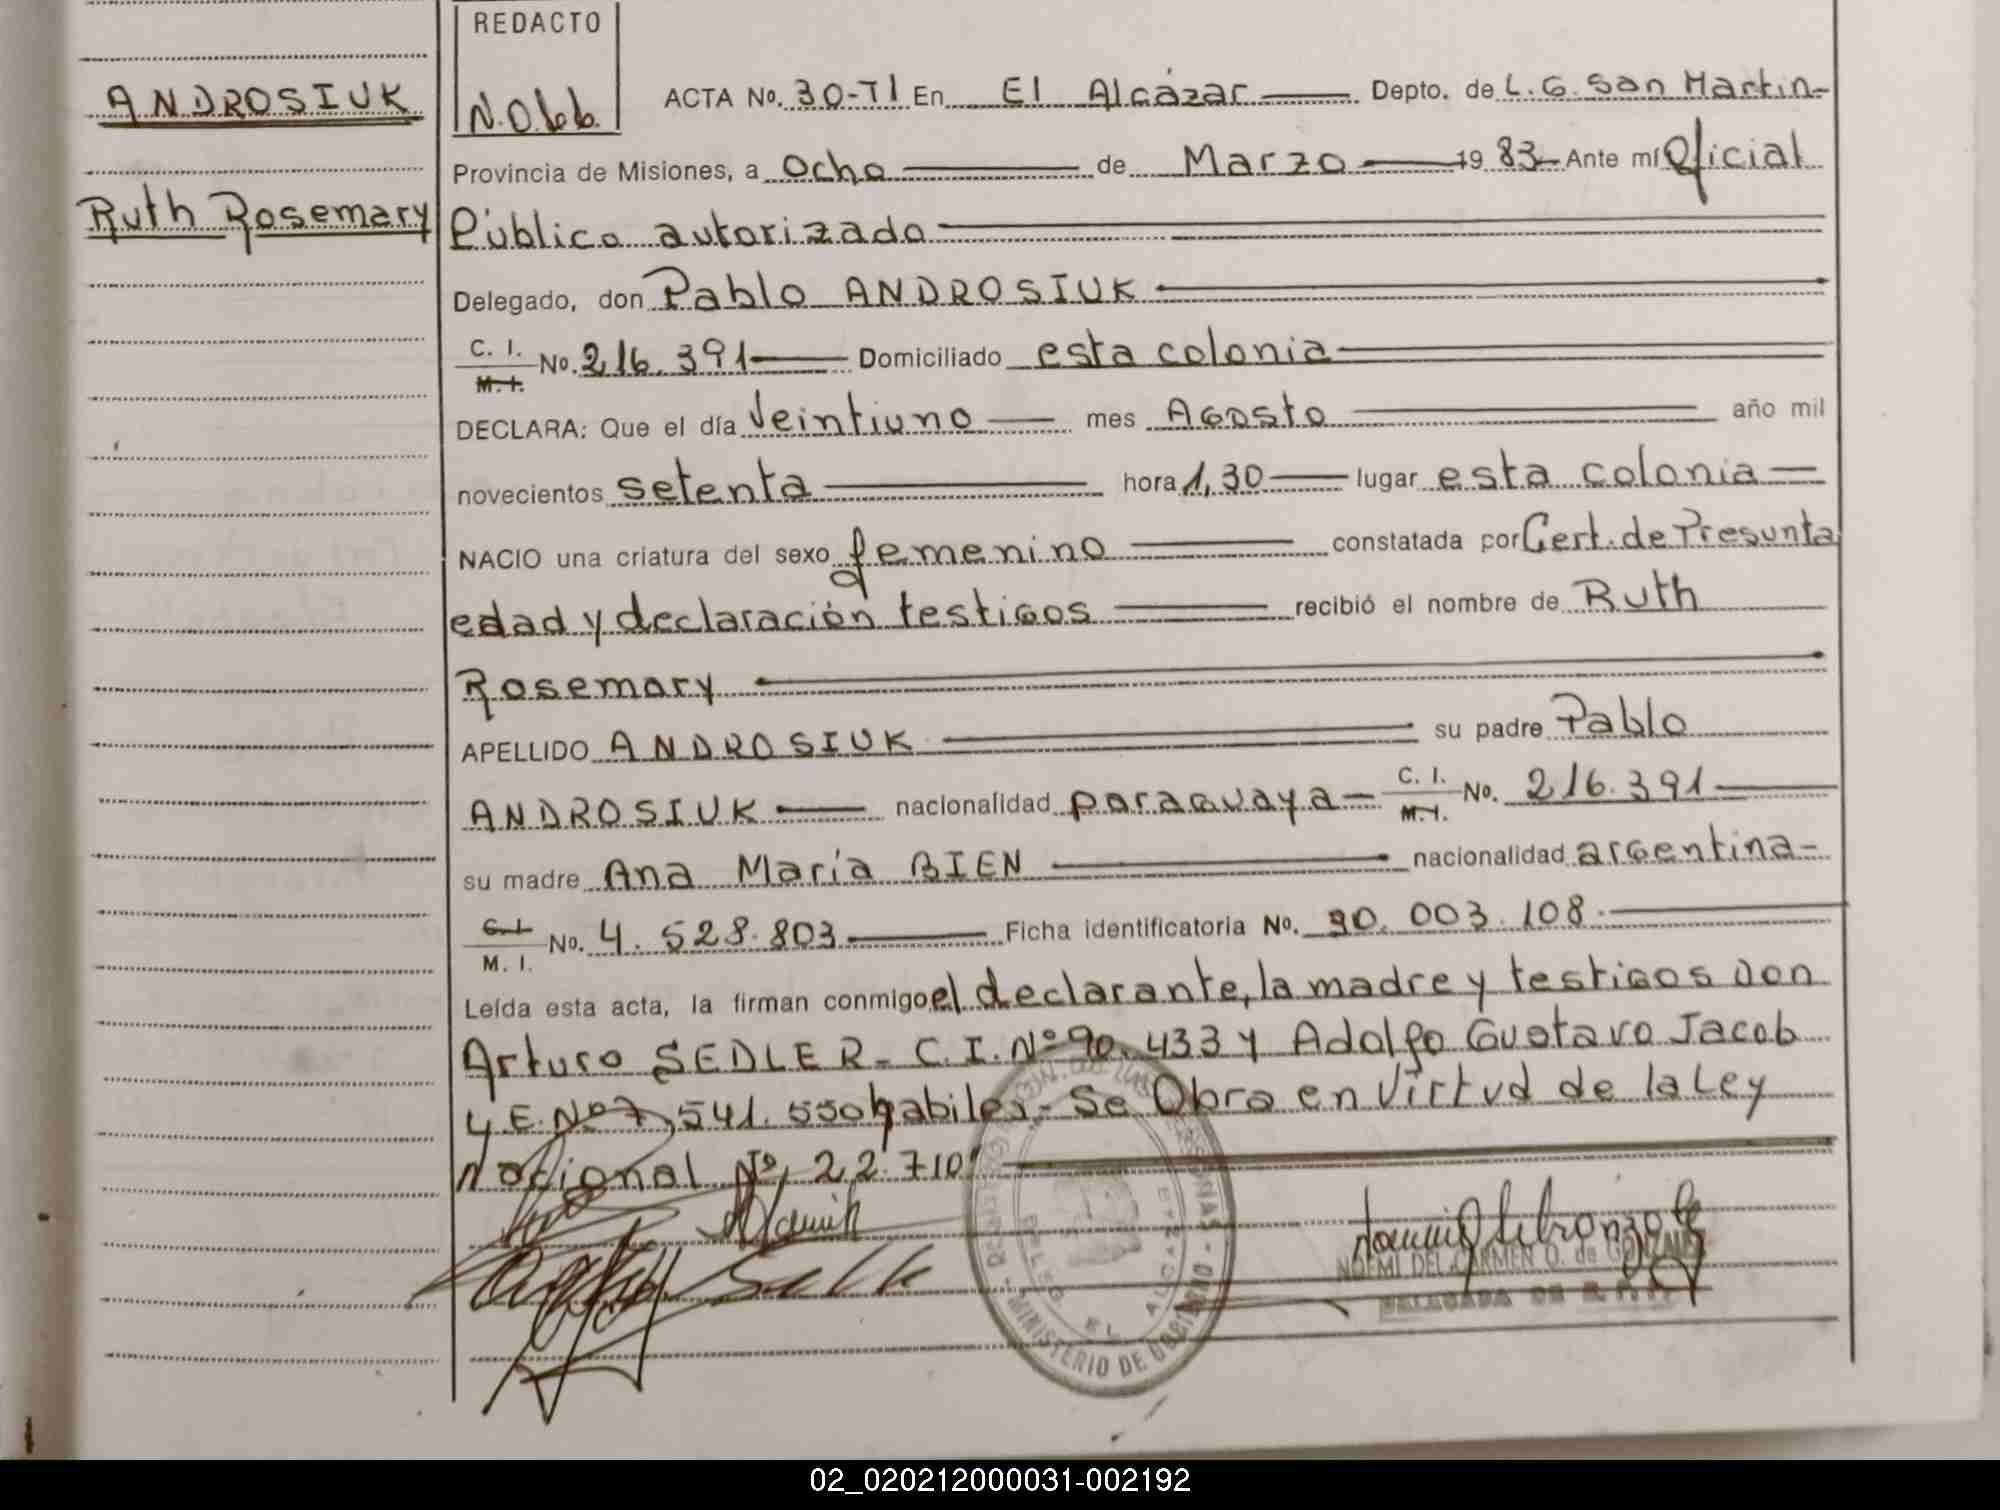 REDACTO
N.O.b.b.
ANDROSIUK
Ruth Rosemary
ACTA No. 30-TI En El Alcázar Depto. de L.G. San Martin-
Provincia de Misiones, a Ocho de Marzo 1983 Ante mí Oficial
Público autorizado
Delegado, don Pablo ANDROSIUK
C. I.
M. I.
No. 216.391 Domiciliado esta colonia
DECLARA: Que el día Veintiuno mes Agosto año mil
novecientos setenta hora 1,30 lugar esta colonia
NACIO una criatura del sexo femenino constatada por Cert. de Presunta
edad y declaración testigos recibió el nombre de Ruth
Rosemary
APELLIDO ANDROSIUK su padre Pablo
ANDROSIUK nacionalidad paraguaya - C. I. M. I. No. 216.391
su madre Ana María BIEN nacionalidad argentina-
C. I.
M. I.
No. 4.528.803 Ficha identificatoria No. 90.003.108
Leída esta acta, la firman conmigo el declarante, la madre y testigos Don
Arturo SEDLER- C.I. Nº 90.433 y Adolfo Gustavo Jacob
L.E. Nº 7.541.550 habiles- Se Obra en Virtud de la Ley
Nacional Nº 22.710
NOEMI DEL CARMEN O. de
DELEGADA DE R. P.
MINISTERIO DE GOBIERNO
EL ALCAZAR
02_020212000031-002192